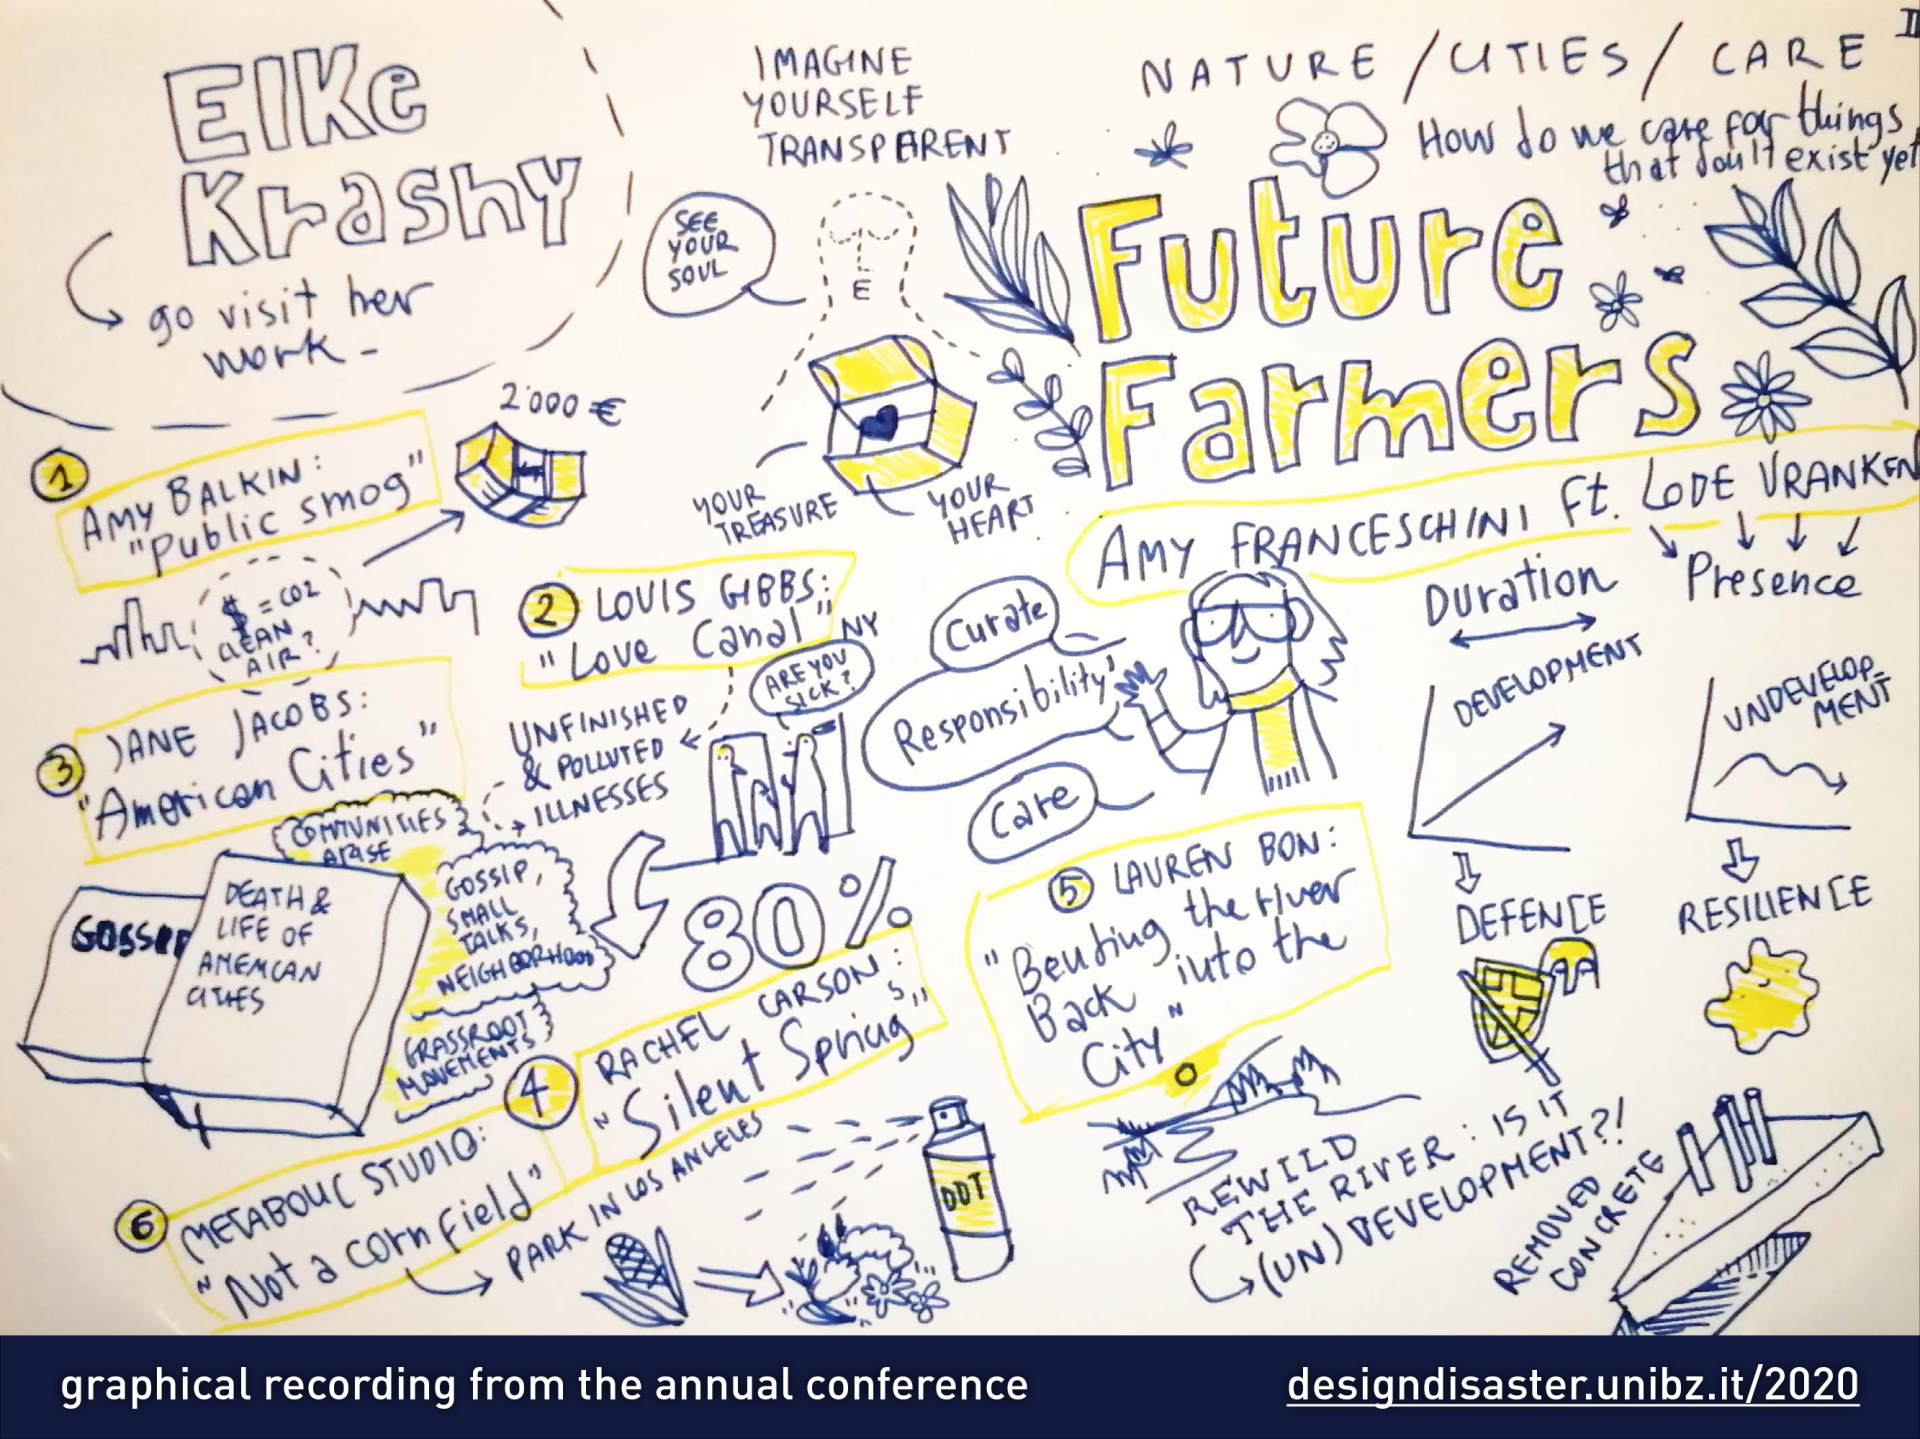 Elke
Krashy
go visit her
work-
IMAGINE
YOURSELF
TRANSPARENT
SEE
YOUR
SOUL
E
YOUR
TREASURE
YOUR
HEART
NATURE / CITIES / CARE
II
How do we care for things
that don't exist yet
Future
Farmers
AMY FRANCESCHINI Ft. LODE VRANKEN
Duration
Presence
DEVELOPMENT
UNDEVELOP-
MENT
DEFENCE
RESILIENCE
Curate
Responsibility
Care
1
AMY BALKIN:
"Public smog"
2'000 €
$ = CO2
CLEAN
AIR?
2
LOUIS GIBBS:
"Love Canal"
NY
ARE YOU
SICK?
UNFINISHED
& POLLUTED
ILLNESSES
80%
3
JANE JACOBS:
"American Cities"
COMMUNITIES
ARISE
GOSSIP,
SMALL
TALKS,
NEIGHBORHOOD
GRASSROOT
MOVEMENTS
GOSSIP
DEATH &
LIFE OF
AMERICAN
CITIES
4
RACHEL CARSON:
"Silent Springs"
DDT
5
LAUREN BON:
"Bending the river
Back into the
City"
REWILD
THE RIVER: IS IT
(UN) DEVELOPMENT?!
REMOVED
CONCRETE
6
METABOLIC STUDIO:
"Not a corn field"
PARK IN LOS ANGELES
graphical recording from the annual conference
designdisaster.unibz.it/2020